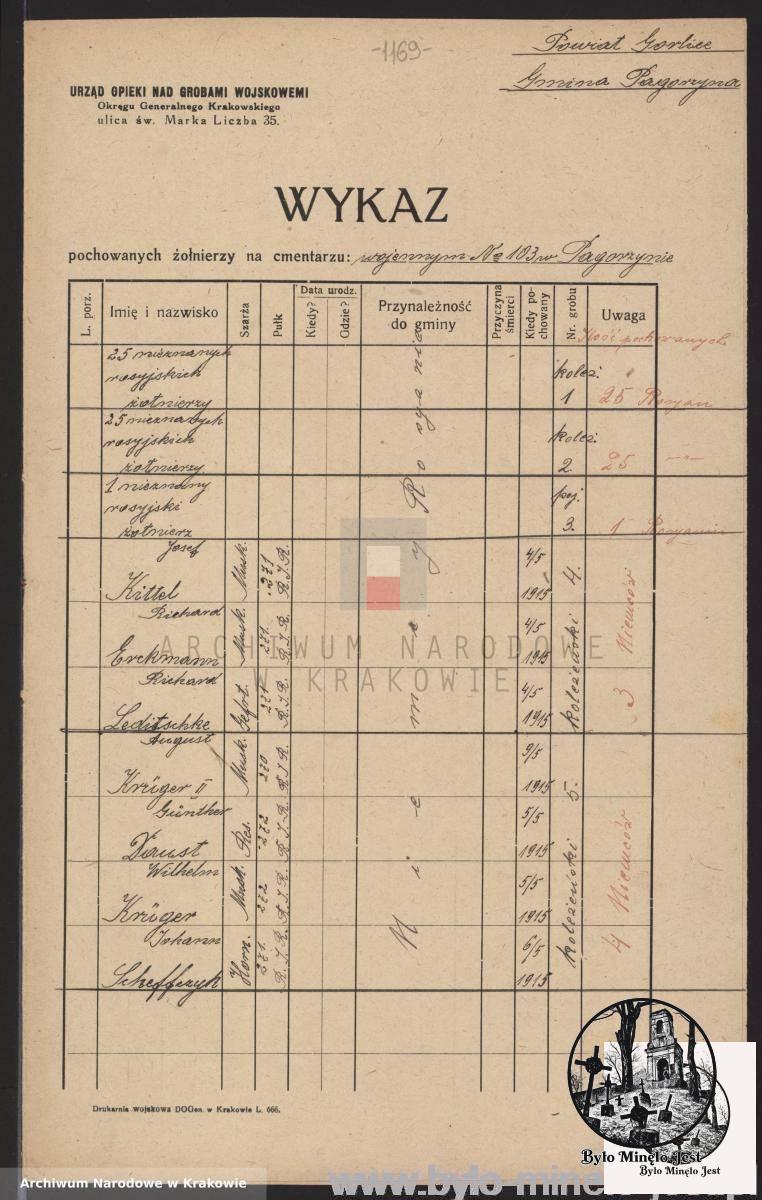 -1169-
Powiat Gorlice
Gmina Pagorzyna
URZĄD OPIEKI NAD GROBAMI WOJSKOWEMI
Okręgu Generalnego Krakowskiego
ulica św. Marka Liczba 35.
WYKAZ
pochowanych żołnierzy na cmentarzu: wojennym No 103 w Pagorzynie
L. porz.
Imię i nazwisko
Szarża
Pułk
Data urodz.
Kiedy?
Gdzie?
Przynależność do gminy
Przyczyna śmierci
Kiedy pochowany
Nr. grobu
Uwaga
Ilość pochowanych
25 nieznanych
rosyjskich
żołnierzy
koleż:
1
25 Rosyan
25 nieznanych
rosyjskich
żołnierzy
koleż:
2.
25 -"-
1 nieznany
rosyjski
żołnierz
poj.
3.
1 Rosyanin
Rosyanie
Josef
Kittel
Musk.
271
R.J.R.
4/5
1915
Richard
Erckmann
Musk.
271.
R.J.R.
4/5
1915
Richard
Leditschke
Gefrt.
271
R.J.R.
4/5
1915
koleżeński 4.
3 Niemców
August
Krüger II
Musk.
270
R.J.R.
9/5
1915
Günther
Daust
Res.
272
R.J.R.
5/5
1915
Wilhelm
Krüger
Musk.
272
R.J.R.
5/5
1915
Johann
Scheffczyk
Horn.
271.
R.J.R.
6/5
1915
koleżeński 5.
4 Niemców
Niemcy
ARCHIWUM NARODOWE
W KRAKOWIE
Drukarnia wojskowa DOGen. w Krakowie L. 666.
Było Minęło Jest
Było Minęło Jest
Archiwum Narodowe w Krakowie